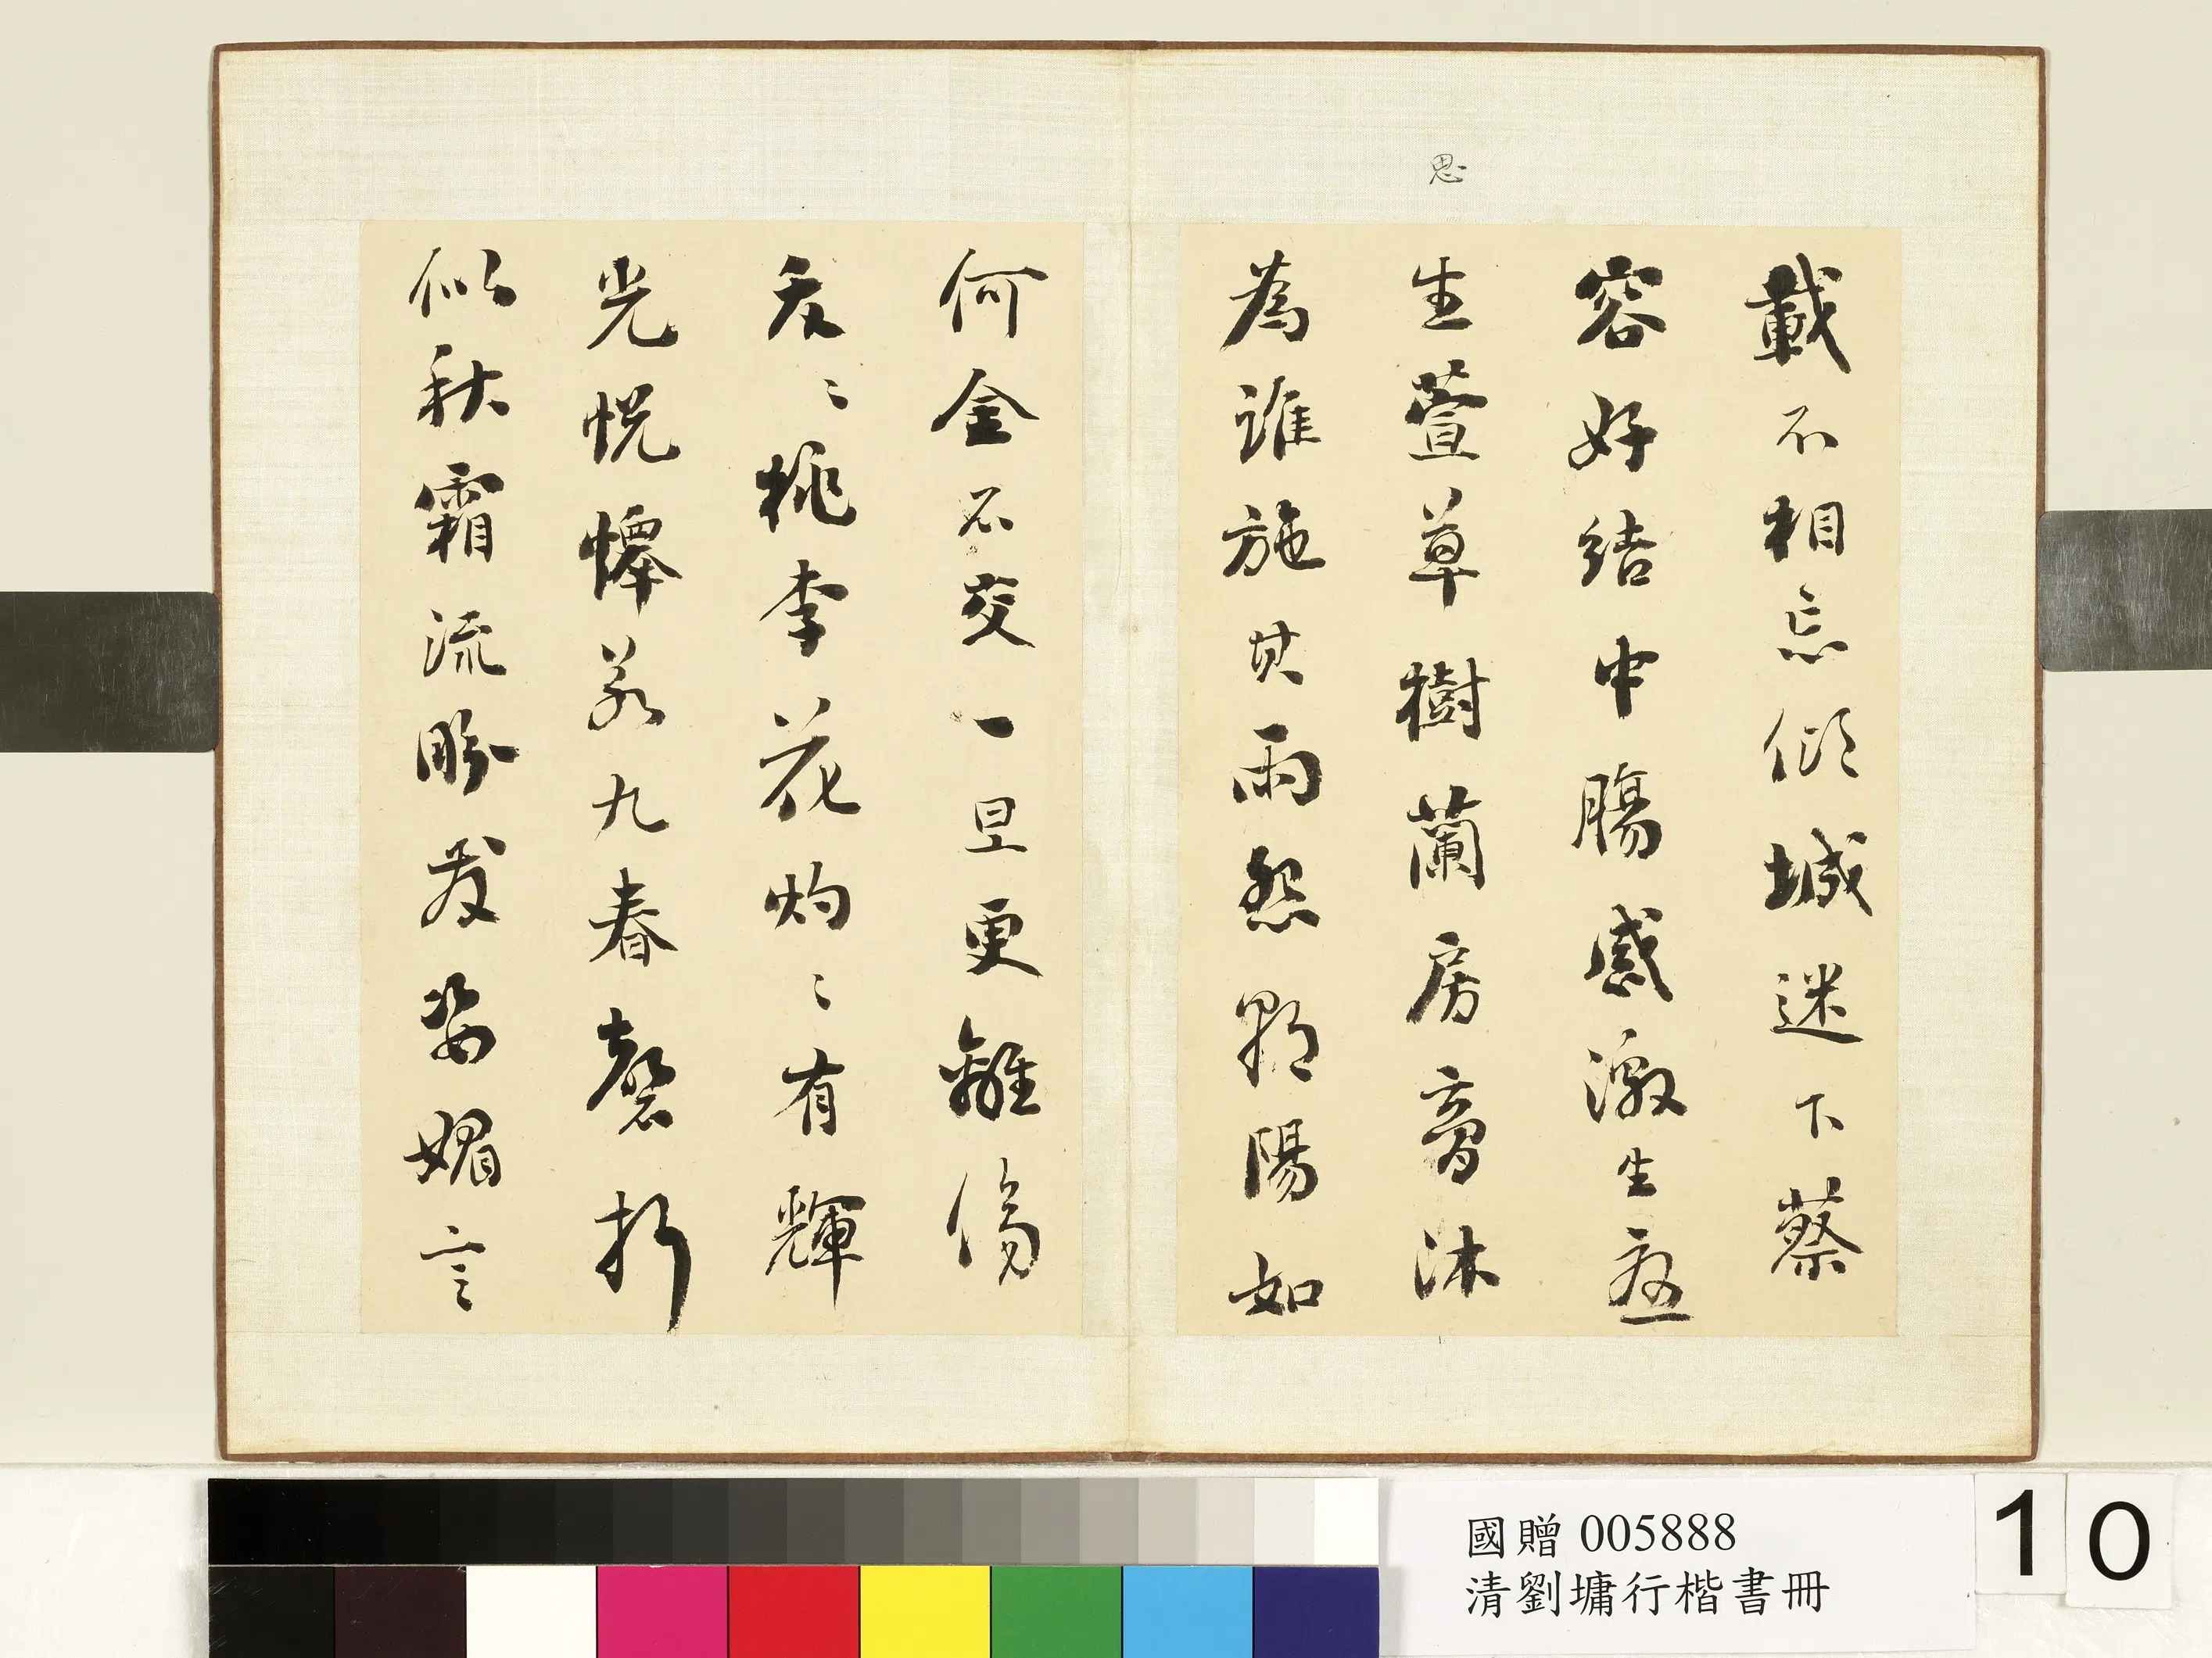 思
載不相忘傾城迷下蔡
容好結中腸感激生憂
生萱草樹蘭房膏沐
為誰施其雨怨朝陽如
何金石交一旦更離傷
夭〻桃李花灼〻有輝
光悅懌若九春磬折
似秋霜流盼發姿媚言
國贈 005888
清劉墉行楷書冊
10